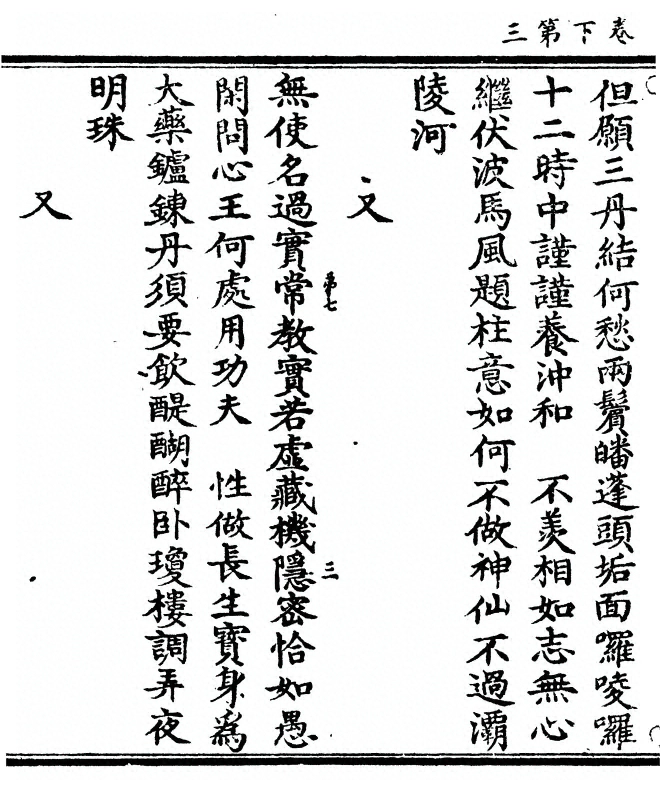 卷下第三
但願三丹結何愁兩鬢皤蓬頭垢面囉唆囉
十二時中謹謹養沖和　不羨相如志無心
繼伏波馬風題柱意如何不做神仙不過灞
陵河
又
第七
無使名過實常教實若虛藏機隱密恰如愚
三
閑問心王何處用功夫　性做長生寶身爲
大藥鑪鍊丹須要飲醍醐醉卧瓊樓調弄夜
明珠
又